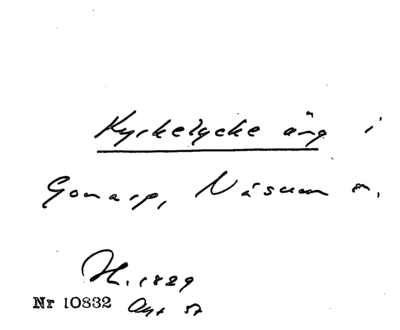 Kyrkelycke äng i
Gonarp, Näsum sn.
H. 1829
Nr 10832